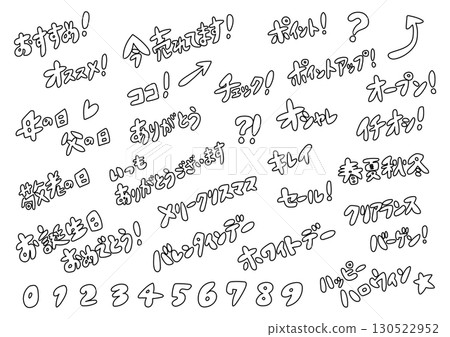 おすすめ！
今売れてます！
ポイント！
？
オススメ！
ココ！
チェック！
ポイントアップ！
オープン！
母の日
父の日
ありがとう
？！
オシャレ
イチオシ！
敬老の日
いつも
ありがとうございます
キレイ
春夏秋冬
お誕生日
おめでとう！
メリークリスマス
セール！
クリアランス
バレンタインデー
ホワイトデー
バーゲン！
ハッピー
ハロウィン
0 1 2 3 4 5 6 7 8 9
130522952